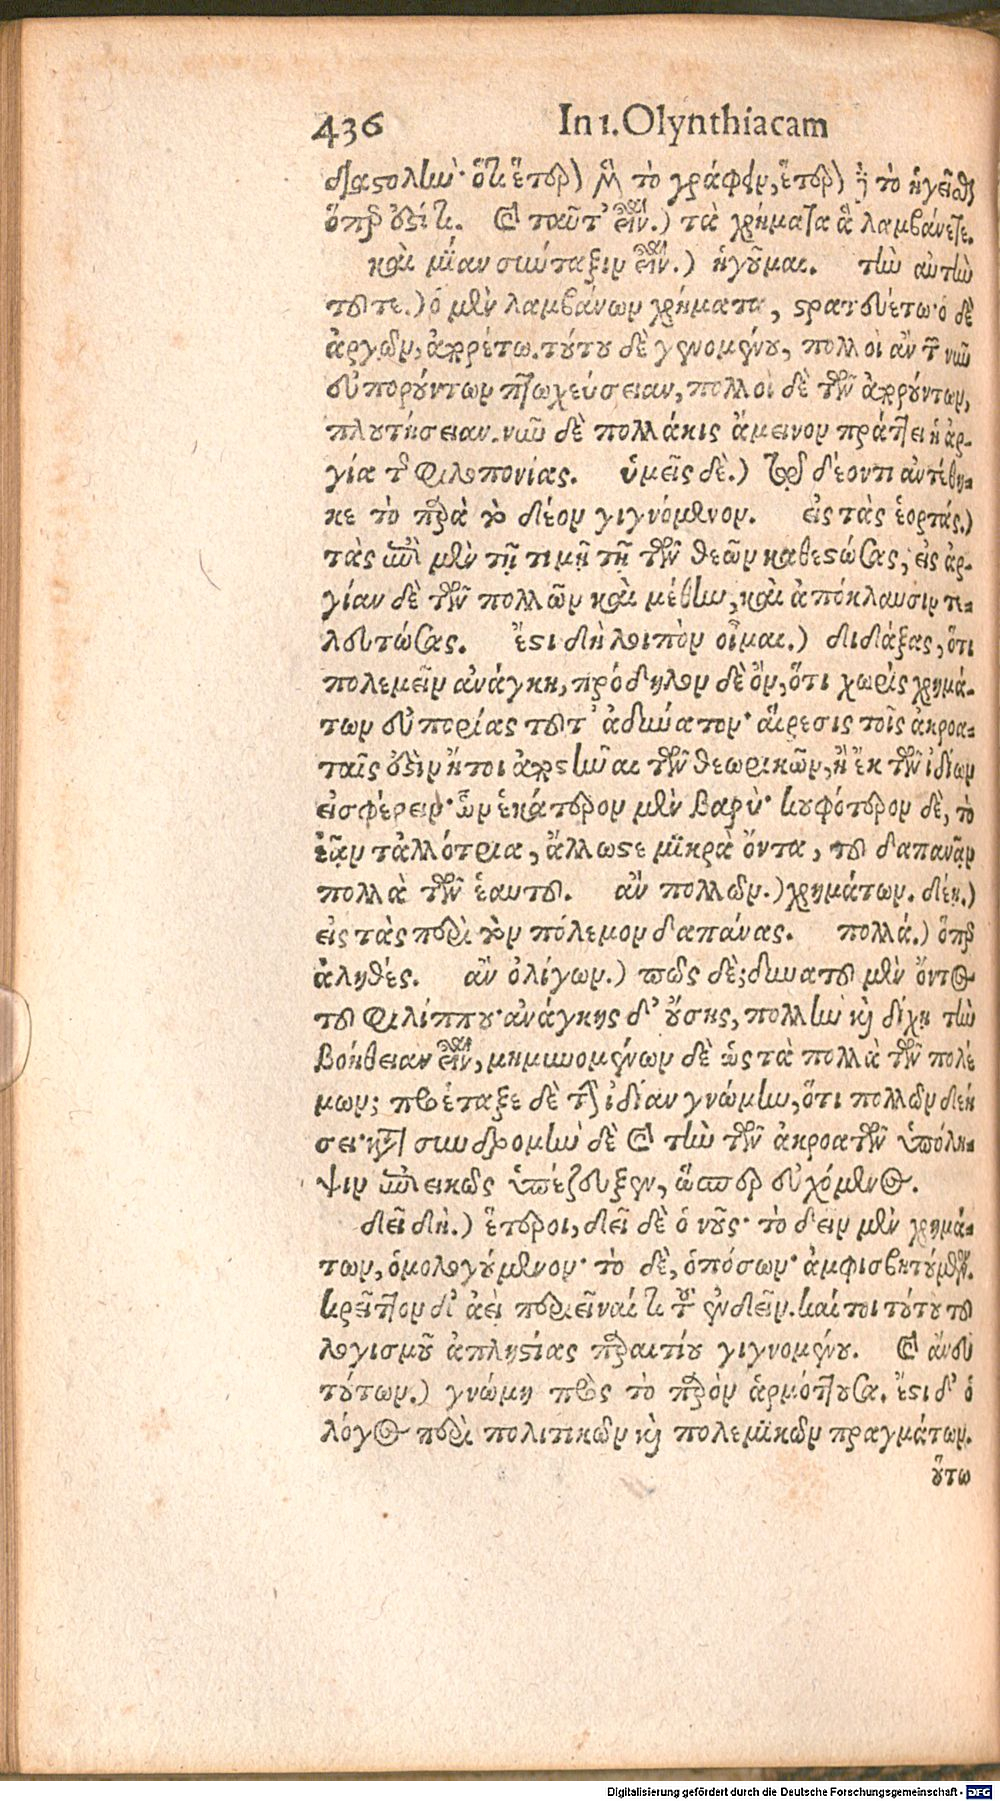 436 In 1. Olynthiacam
διαστολὴν· ὅτι ἕτερόν ἐστι τὸ γράφειν, ἕτερον τὸ ἡγεῖσθαι
ὅπερ ἐστί. καὶ ταῦτ' εἶναι.) τὰ χρήματα ἃ λαμβάνετε.
καὶ μίαν σύνταξιν εἶναι.) ἡγοῦμαι. τὴν αὐτὴν
τοῦτε.) ὁ μὲν λαμβάνων χρήματα, στρατευέτω· ὁ δὲ
ἀργῶν, ἀπορείτω. τούτου δὲ γενομένου, πολλοὶ ἂν τῶν νῦν
εὐπορούντων πτωχεύσειαν, πολλοὶ δὲ τῶν ἀπορούντων,
πλουτήσειαν. νῦν δὲ πολλάκις ἄμεινον πράττει ἡ ἀρ-
γία τῆς φιλοπονίας. ὑμεῖς δὲ.) τῷ δέοντι ἀντέθη-
κε τὸ παρὰ τὸ δέον γιγνόμενον. εἰς τὰς ἑορτάς.)
τὰς ἐπὶ μὲν τῇ τιμῇ τῇ τῶν θεῶν καθεστώσας, εἰς ἀρ-
γίαν δὲ τῶν πολλῶν καὶ μέθην, καὶ ἀπόκλαυσιν τε-
λευτώσας. ἔστι δὴ λοιπὸν οἶμαι.) διδάξας, ὅτι
πολεμεῖν ἀνάγκη, πρόδηλον δὲ ὂν, ὅτι χωρὶς χρημά-
των εὐπορίας τοῦτ' ἀδύνατον· αἵρεσις τοῖς ἀκροα-
ταῖς ἐστὶν ἤτοι ἀποστῆναι τῶν θεωρικῶν, ἢ ἐκ τῶν ἰδίων
εἰσφέρειν· ὧν ἑκάτερον μὲν βαρύ· κουφότερον δὲ, τὸ
ἐᾷν τἀλλότρια, ἄλλωστε μικρὰ ὄντα, τοῦ δαπανᾷν
πολλὰ τῶν ἑαυτοῦ. ἂν πολλῶν.) χρημάτων. δέῃ.)
εἰς τὰς περὶ τὸν πόλεμον δαπάνας. πολλά.) ὅπερ
ἀληθές. ἂν ὀλίγων.) πῶς δέ; δυνατοῦ μὲν ὄντος
τοῦ Φιλίππου· ἀνάγκης δ' οὔσης, πολλὴν καὶ δίχῃ τὴν
βοήθειαν εἶναι, μηνυομένων δὲ ὡς τὰ πολλὰ τῶν πολέ
μων; προέταξε δὲ τὴν ἰδίαν γνώμην, ὅτι πολλῶν δεή
σει· κατὰ συνδρομὴν δὲ καὶ τὴν τῶν ἀκροατῶν ὑπόλη-
ψιν ἐπιεικῶς ὑπέζευξεν, ὥσπερ εὐχόμενος.
δεῖ δὴ.) ἕτεροι, δεῖ δὲ ὁ νοῦς· τὸ δεῖν μὲν χρημά-
των, ὁμολογούμενον· τὸ δὲ, ὁπόσων· ἀμφισβητούμενον.
κρεῖττον δ' ἀεὶ περιεῖναί τι τοῦ ἐνδεῖν. καί τοι τούτου τοῦ
λογισμοῦ ἀπληστίας παραιτίου γιγνομένου. καὶ ἄνευ
τούτων.) γνώμη πρὸς τὸ παρὸν ἁρμόττουσα. ἔστι δ' ὁ
λόγος περὶ πολιτικῶν καὶ πολεμικῶν πραγμάτων.
οὕτω
Digitalisierung gefördert durch die Deutsche Forschungsgemeinschaft - DFG